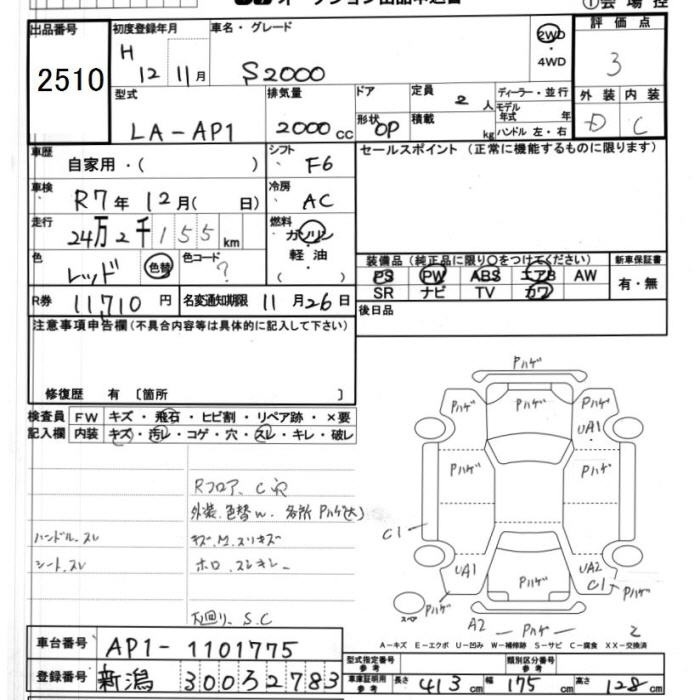 出品番号
2510
初度登録年月
H 12 11月
車名・グレード
S2000
2WD
・
4WD
評価点
3
型式
LA-AP1
排気量
2000cc
ドア
形状 OP
定員 2 人
積載 kg
ディーラー・並行
モデル年式 年
ハンドル 左・右
外装 内装
D C
車歴
自家用・( )
シフト F6
セールスポイント (正常に機能するものに限ります)
車検
R7年 12月( 日)
冷房 AC
走行
24万2千155km
燃料
ガソリン
軽油
( )
色
レッド 色替
色コード ?
装備品 (純正品に限り○をつけてください)
新車保証書
PS PW ABS エアB AW
SR ナビ TV カワ
有・無
R券 11,710円
名変通知期限 11月26日
後日品
注意事項申告欄(不具合内容等は具体的に記入して下さい)
修復歴 有〔箇所 〕
検査員 FW キズ・飛石・ヒビ割・リペア跡・×要
記入欄 内装 キズ・汚レ・コゲ・穴・スレ・キレ・破レ
Rフロア、C穴
外装.色替w. 各所Pハゲ(大)
ハンドル.スレ
キズ.M.スリキズ
シート.スレ
ホロ.スレキレ
下廻り.S.C
Pハゲ
Pハゲ Pハゲ Pハゲ
UA1
Pハゲ Pハゲ
C1
UA1 UA2
Pハゲ C1
スペア Pハゲ Pハゲ
A2 Pハゲ 2
A-キズ E-エクボ U-凹み W-補修跡 S-サビ C-腐食 XX-交換済
車台番号 AP1-1101775
型式指定番号 参考
類別区分番号 参考
登録番号 新潟 300ミ2783
車庫証明用 参考 長さ 413cm 幅 175cm 高さ 128cm